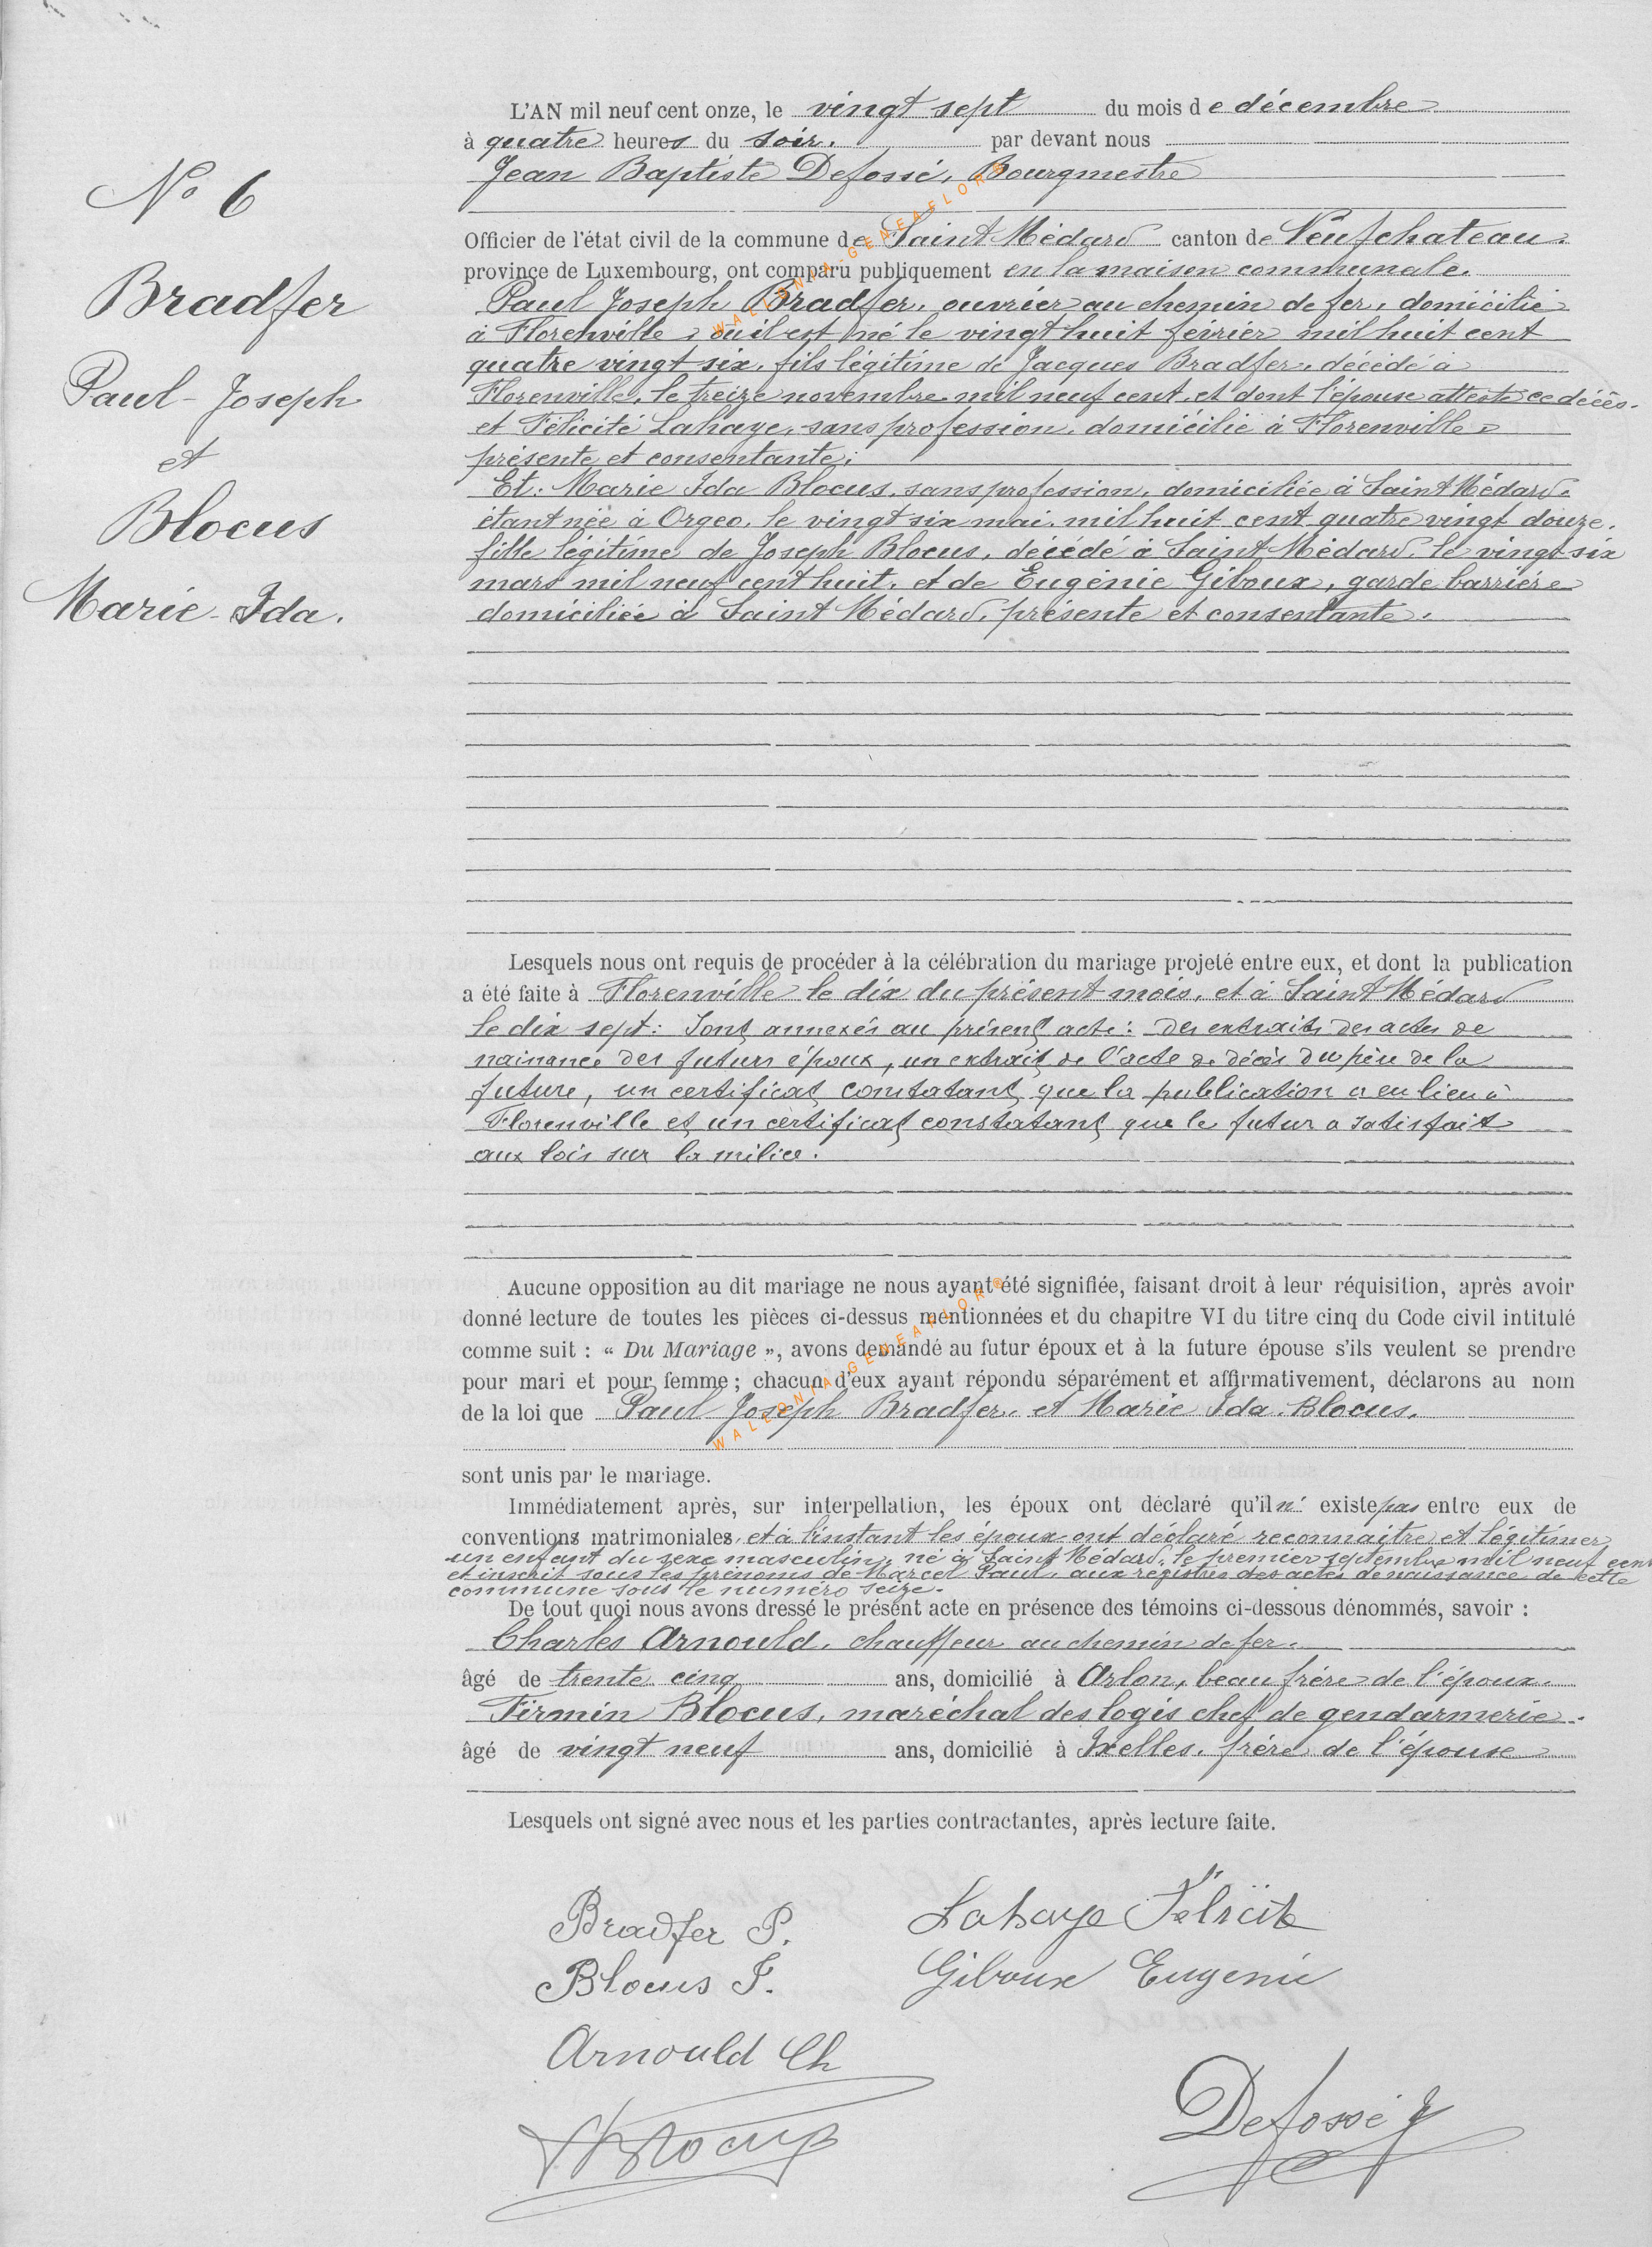 N° 6
Bradfer
Paul-Joseph
et
Blocus
Marie-Ida.
L'AN mil neuf cent onze, le vingt sept du mois de décembre
à quatre heures du soir. par devant nous
Jean Baptiste Defossé, Bourgmestre
Officier de l'état civil de la commune de Saint Médard canton de Neufchateau.
province de Luxembourg, ont comparu publiquement en la maison communale.
Paul Joseph Bradfer, ouvrier au chemin de fer, domicilié
à Florenville, où il est né le vingt huit février mil huit cent
quatre vingt six, fils légitime de Jacques Bradfer, décédé à
Florenville, le treize novembre mil neuf cent, et dont l'épouse atteste ce décès.
et Félicité Lahaye, sans profession, domicilié à Florenville
présente et consentante;
Et: Marie Ida Blocus, sans profession, domiciliée à Saint Médard.
étant née à Orgeo, le vingt six mai, mil huit cent quatre vingt douze,
fille légitime de Joseph Blocus, décédé à Saint Médard, le vingt six
mars mil neuf cent huit, et de Eugénie Giboux, garde barrière
domiciliée à Saint Médard, présente et consentante.
Lesquels nous ont requis de procéder à la célébration du mariage projeté entre eux, et dont la publication
a été faite à Florenville le dix du présent mois, et à Saint Médard
le dix sept: Sont annexés au présent acte: Des extraits des actes de
naissance des futurs époux, un extrait de l'acte de décès du père de la
future, un certificat constatant que la publication a eu lieu à
Florenville et un certificat constatant que le futur a satisfait
aux lois sur la milice.
Aucune opposition au dit mariage ne nous ayant été signifiée, faisant droit à leur réquisition, après avoir
donné lecture de toutes les pièces ci-dessus mentionnées et du chapitre VI du titre cinq du Code civil intitulé
comme suit : « Du Mariage », avons demandé au futur époux et à la future épouse s'ils veulent se prendre
pour mari et pour femme ; chacun d'eux ayant répondu séparément et affirmativement, déclarons au nom
de la loi que Paul Joseph Bradfer, et Marie Ida Blocus,
sont unis par le mariage.
Immédiatement après, sur interpellation, les époux ont déclaré qu'il n' existe pas entre eux de
conventions matrimoniales, et à l'instant les époux ont déclaré reconnaitre et légitimer
un enfant du sexe masculin, né à Saint Médard, le premier septembre mil neuf cent
et inscrit sous les prénoms de Marcel Paul, aux registres des actes de naissance de cette
commune sous le numéro seize.
De tout quoi nous avons dressé le présent acte en présence des témoins ci-dessous dénommés, savoir :
Charles Arnould, chauffeur au chemin de fer.
âgé de trente cinq ans, domicilié à Arlon, beau frère de l'époux.
Firmin Blocus, maréchal des logis chef de gendarmerie.
âgé de vingt neuf ans, domicilié à Ixelles, frère de l'épouse
Lesquels ont signé avec nous et les parties contractantes, après lecture faite.
Bradfer P. Lahaye Félicité
Blocus I. Giboux Eugenie
Arnould Ch
Blocus
Defossé J
WALLONIA-GENEAFLOR®
WALLONIA-GENEAFLOR®